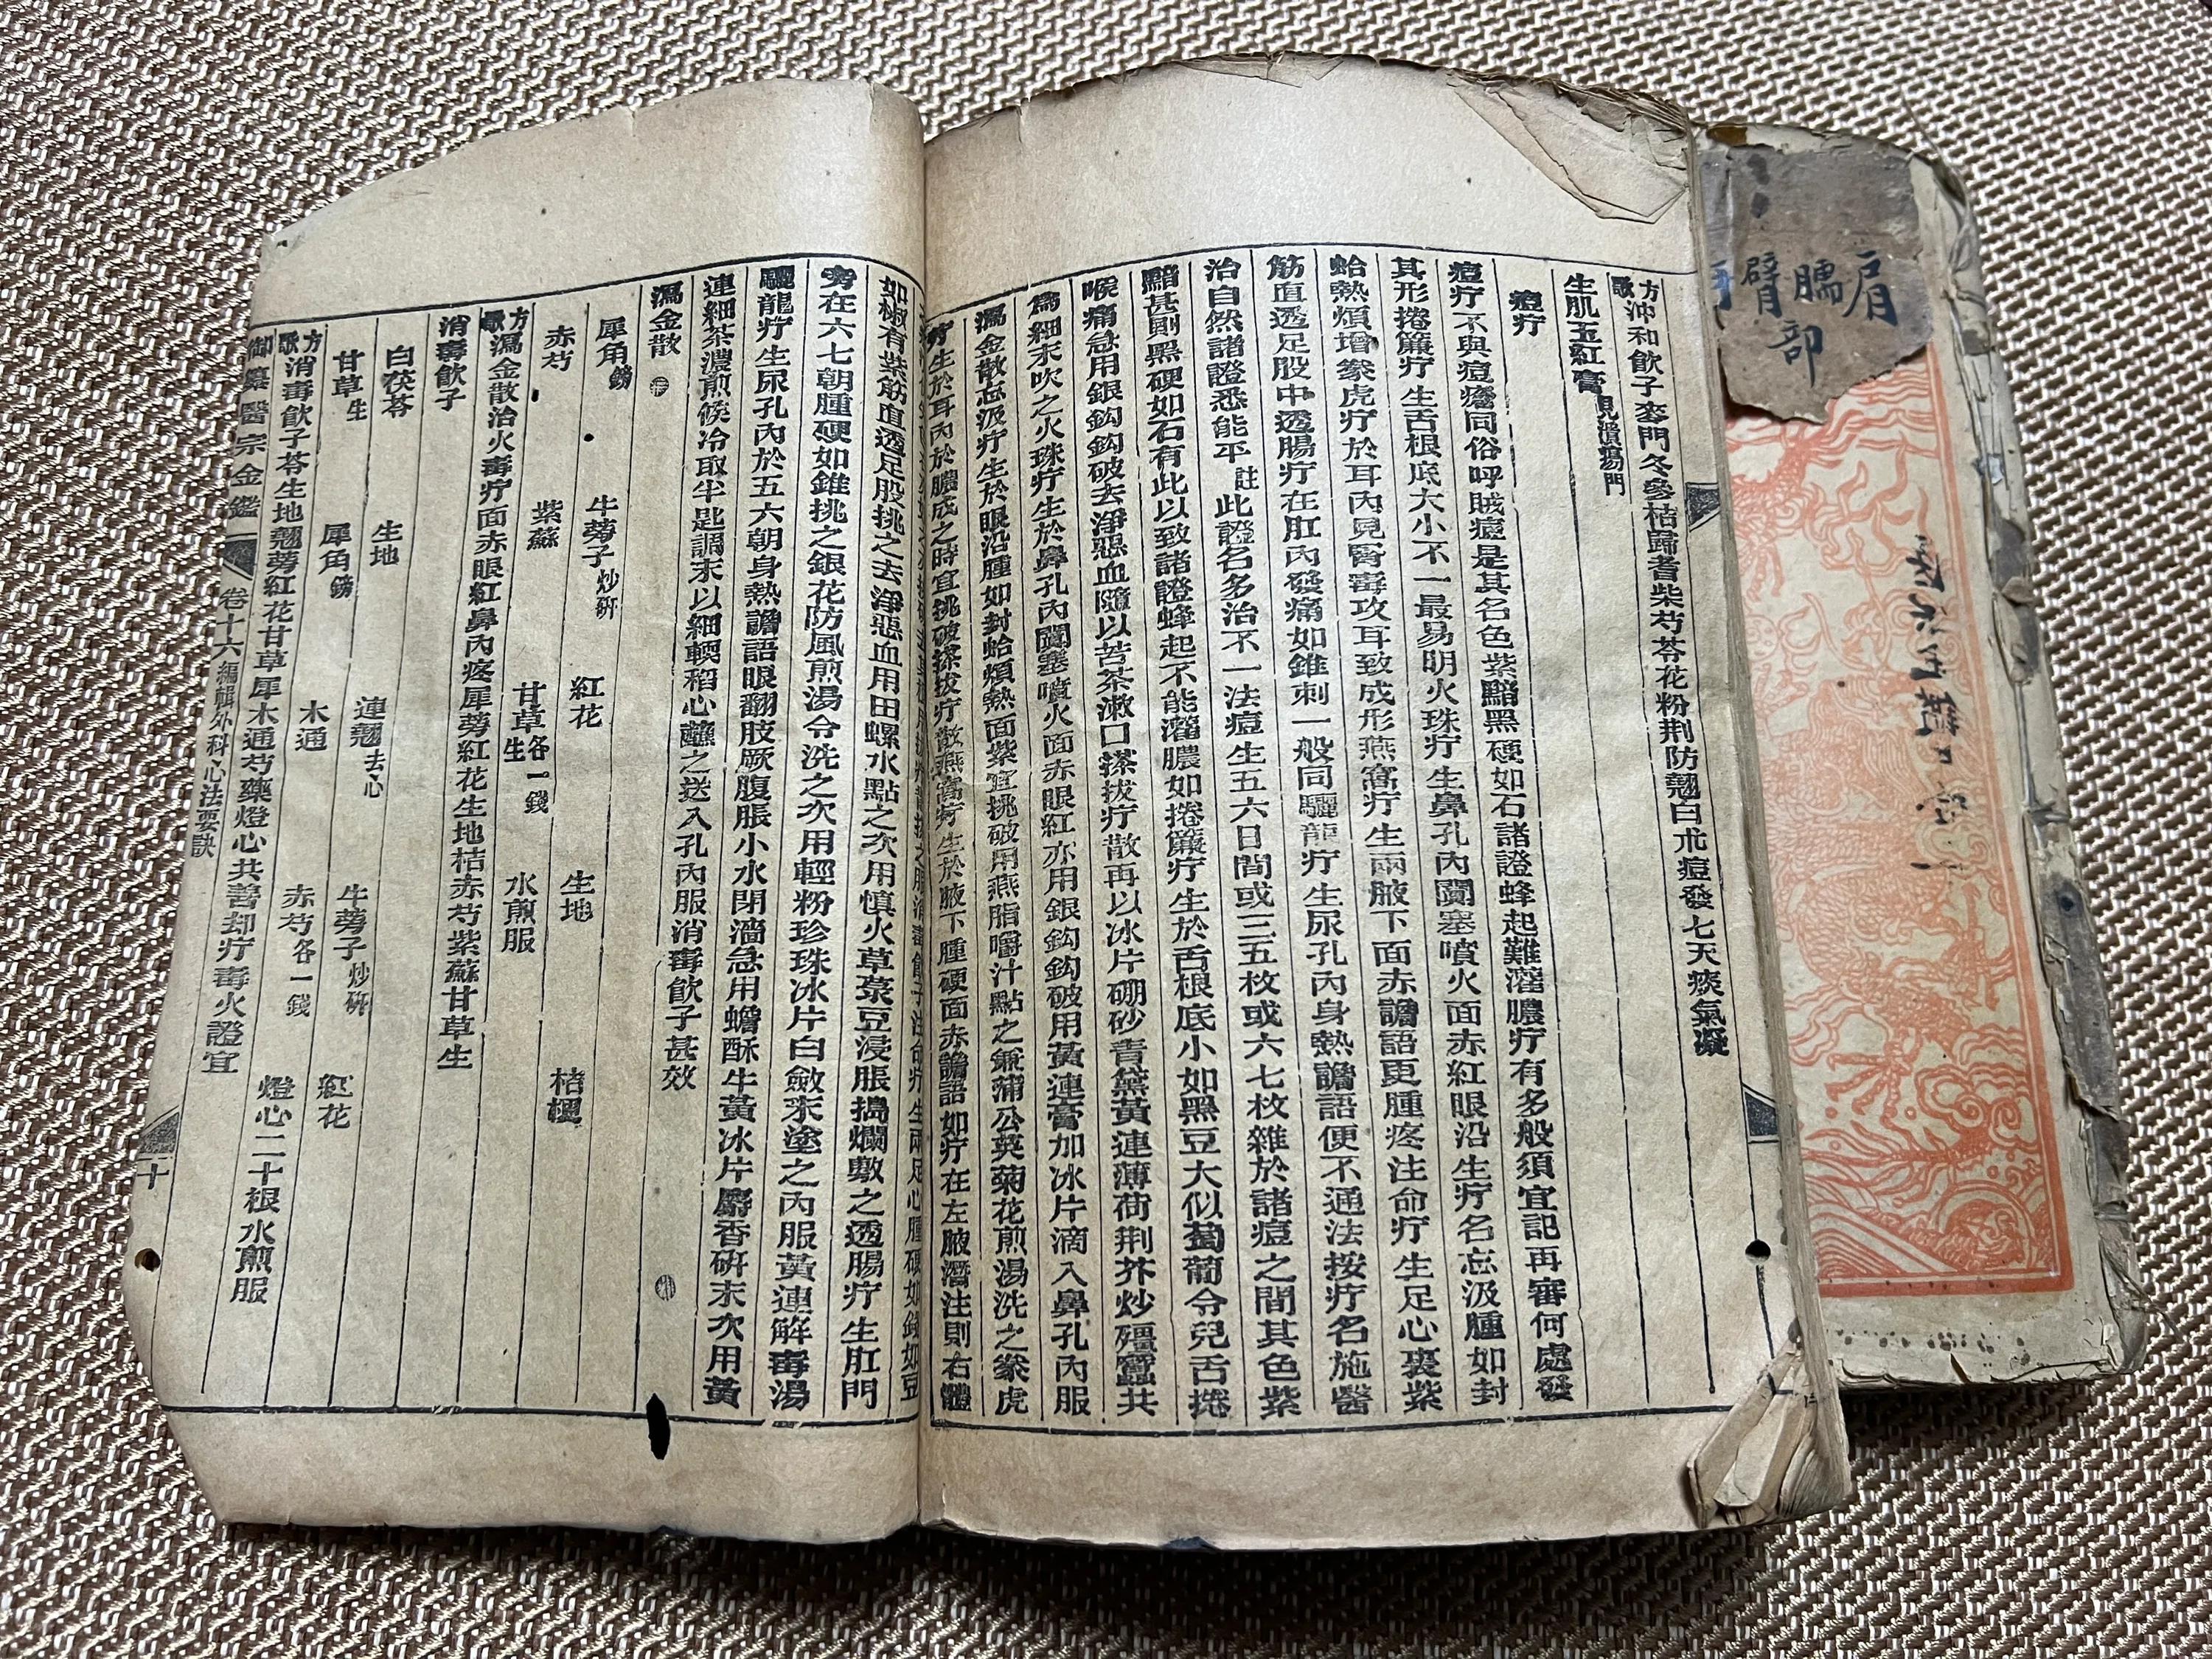 方歌沖和飲子麥門冬參桔歸耆柴芍苓花粉荆防翹白朮痘發七天痰氣凝
生肌玉紅膏見潰瘍門
痘疔
痘疔不與痘癰同俗呼賊痘是其名色紫黯黑硬如石諸證蜂起難灌膿疔有多般須宜記再審何處發
其形捲簾疔生舌根底大小不一最易明火珠疔生鼻孔內鬭塞噴火面赤紅眼沿生疔名忘汲腫如封
蛤熱煩增豢虎疔於耳內見腎毒攻耳致成形燕窩疔生兩腋下面赤譫語更腫疼注命疔生足心裏紫
筋直透足股中透腸疔在肛內發痛如錐刺一般同驪龍疔生尿孔內身熱譫語便不通法按疔名施醫
治自然諸證悉能平註此證名多治不一法痘生五六日間或三五枚或六七枚雜於諸痘之間其色紫
黯甚則黑硬如石有此以致諸證蜂起不能灌膿如捲簾疔生於舌根底小如黑豆大似葡萄令兒舌捲
喉痛急用銀鈎鈎破去淨惡血隨以苦茶漱口搽拔疔散再以冰片硼砂青黛黃連薄荷荆芥炒殭蠶共
爲細末吹之火珠疔生於鼻孔內鬭塞噴火面赤眼紅亦用銀鈎鈎破用黃連膏加冰片滴入鼻孔內服
瀉金散忘汲疔生於眼沿腫如封蛤煩熱面紫宜挑破用燕脂嚼汁點之兼蒲公英菊花煎湯洗之豢虎
疔生於耳內於膿成之時宜挑破搽拔疔散燕窩疔生於腋下腫硬面赤譫語如疔在左腋潛注則右體
如椒有紫筋直透足股挑之去淨惡血用田螺水點之次用慎火草菉豆浸脹搗爛敷之透腸疔生肛門
旁在六七朝腫硬如錐挑之銀花防風煎湯令洗之次用輕粉珍珠冰片白蘞末塗之內服黃連解毒湯
驪龍疔生尿孔內於五六朝身熱譫語眼翻肢厥腹脹小水閉濇急用蟾酥牛黃冰片麝香研末次用黃
連細茶濃煎候冷取半匙調末以細輭稻心蘸之送入孔內服消毒飲子甚效
瀉金散
犀角鎊 牛蒡子炒研 紅花 生地 桔梗
赤芍 紫蘇 甘草生各一錢 水煎服
方歌瀉金散治火毒疔面赤眼紅鼻內疼犀蒡紅花生地桔赤芍紫蘇甘草生
消毒飲子
白茯苓 生地 連翹去心 牛蒡子炒研 紅花
甘草生 犀角鎊 木通 赤芍各一錢 燈心二十根水煎服
方歌消毒飲子苓生地翹蒡紅花甘草犀木通芍藥燈心共善却疔毒火證宜
御纂醫宗金鑑 卷十六編輯外科心法要訣 二十
肩臑臂
部